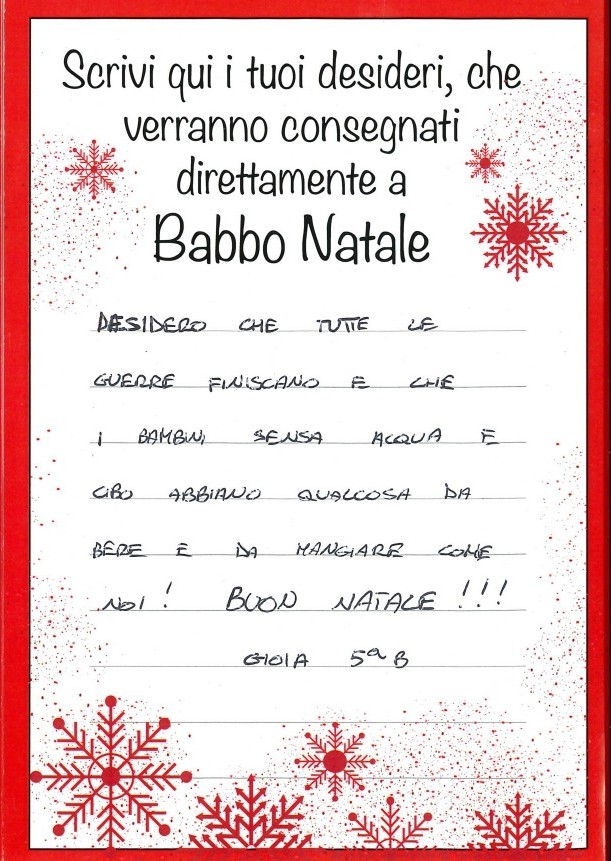 Scrivi qui i tuoi desideri, che
verranno consegnati
direttamente a
Babbo Natale
DESIDERO CHE TUTTE LE
GUERRE FINISCANO E CHE
I BAMBINI SENSA ACQUA E
CIBO ABBIANO QUALCOSA DA
BERE E DA MANGIARE COME
NOI! BUON NATALE!!!
GIOIA 5ª B